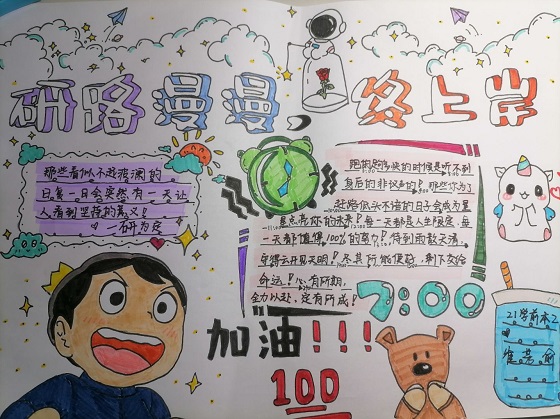 研路漫漫，终上岸
那些看似不起波澜的
日复一日会突然有一天让
人看到坚持的意义！
一研为定
跑的够多快的时候是听不到
身后的非议声的！那些你为了
赶路从不说的日子会成为星
星点亮你的未来！每一天都是人生限定，每
一天都值得100%的努力！待到雨散天清，
守得云开见天明！尽其所能便好，剩下交给
命运！心有所期，
全力以赴，定有所成！
7:00
加油！！！
100
21学前本2